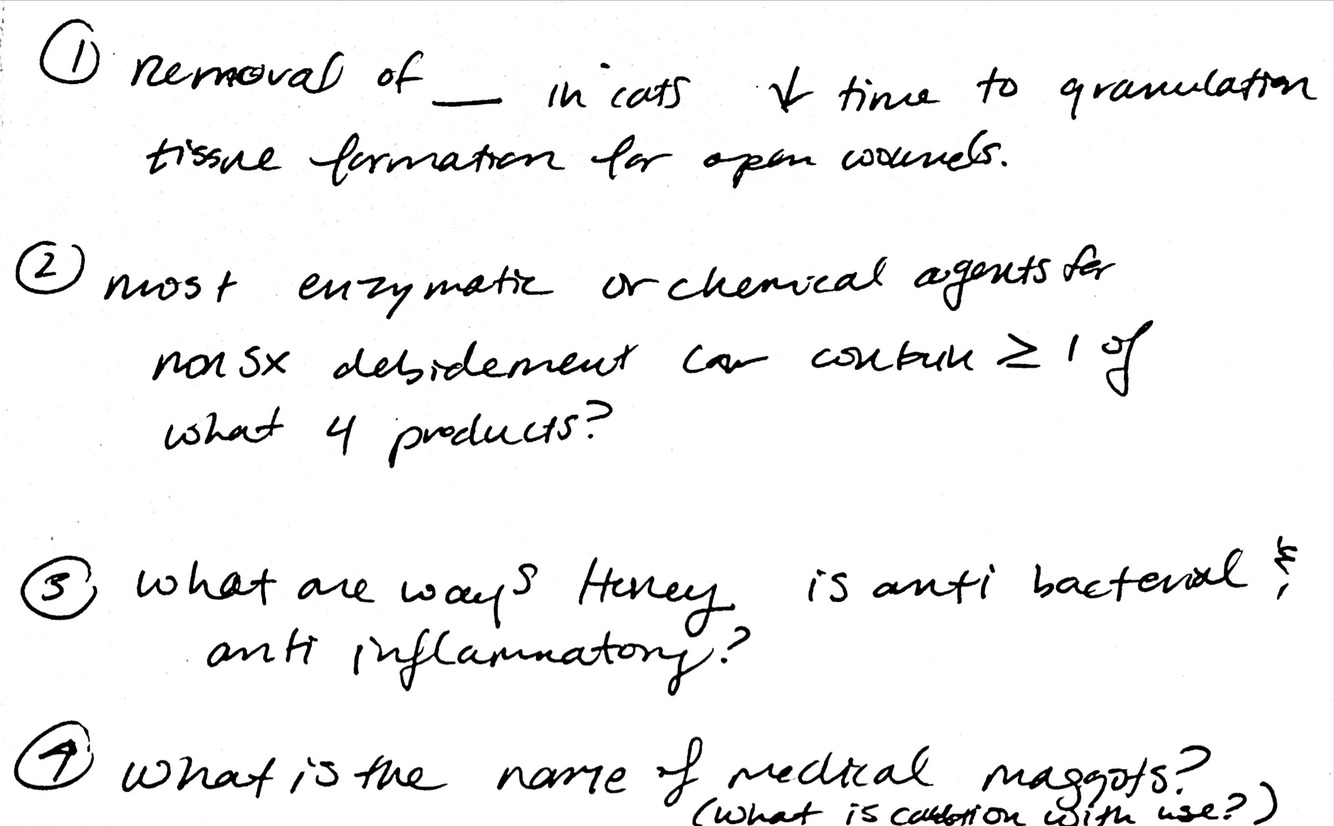 ① Removal of __ in cats ↓ time to granulation
tissue formation for open wounds.
② most enzymatic or chemical agents for
non sx debridement can contain ≥ 1 of
what 4 products?
③ what are ways Honey is anti bacterial &
anti inflammatory?
④ what is the name of medical maggots?
(what is caution with use?)